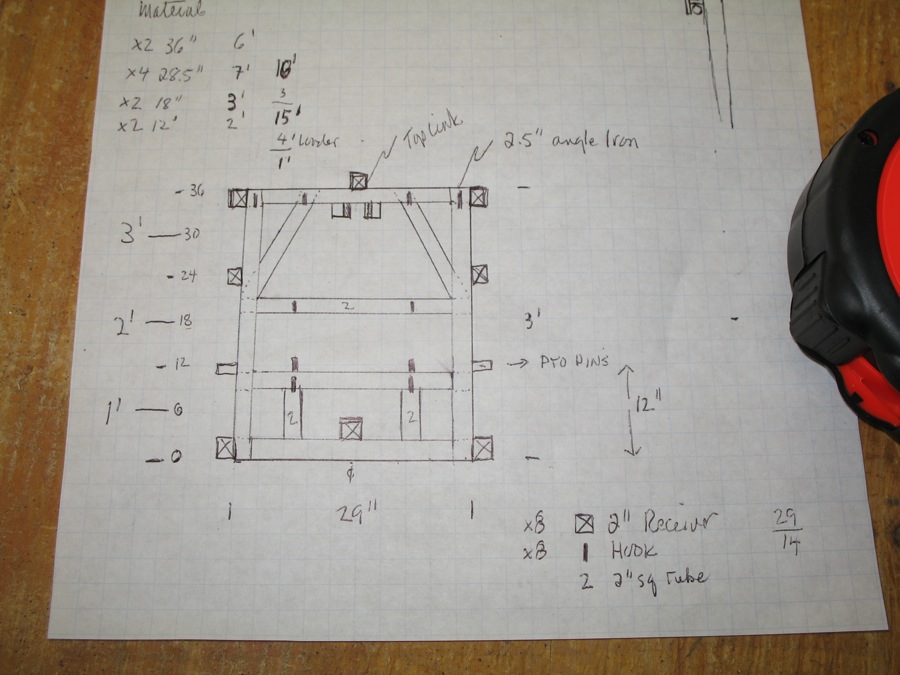 Material
x2 36" 6'
x4 28.5" 7' 10'
x2 18" 3' 3
x2 12' 2' 15'
4'
1'
Top Link
2.5" angle Iron
- 36
3' — 30
- 24
2
2' — 18
3'
- 12
→ PTO PINS
1' — 6
2 2
12"
- 0
¢
29"
x8 2" Receiver
29
14
x8 Hook
2 2" sq Tube